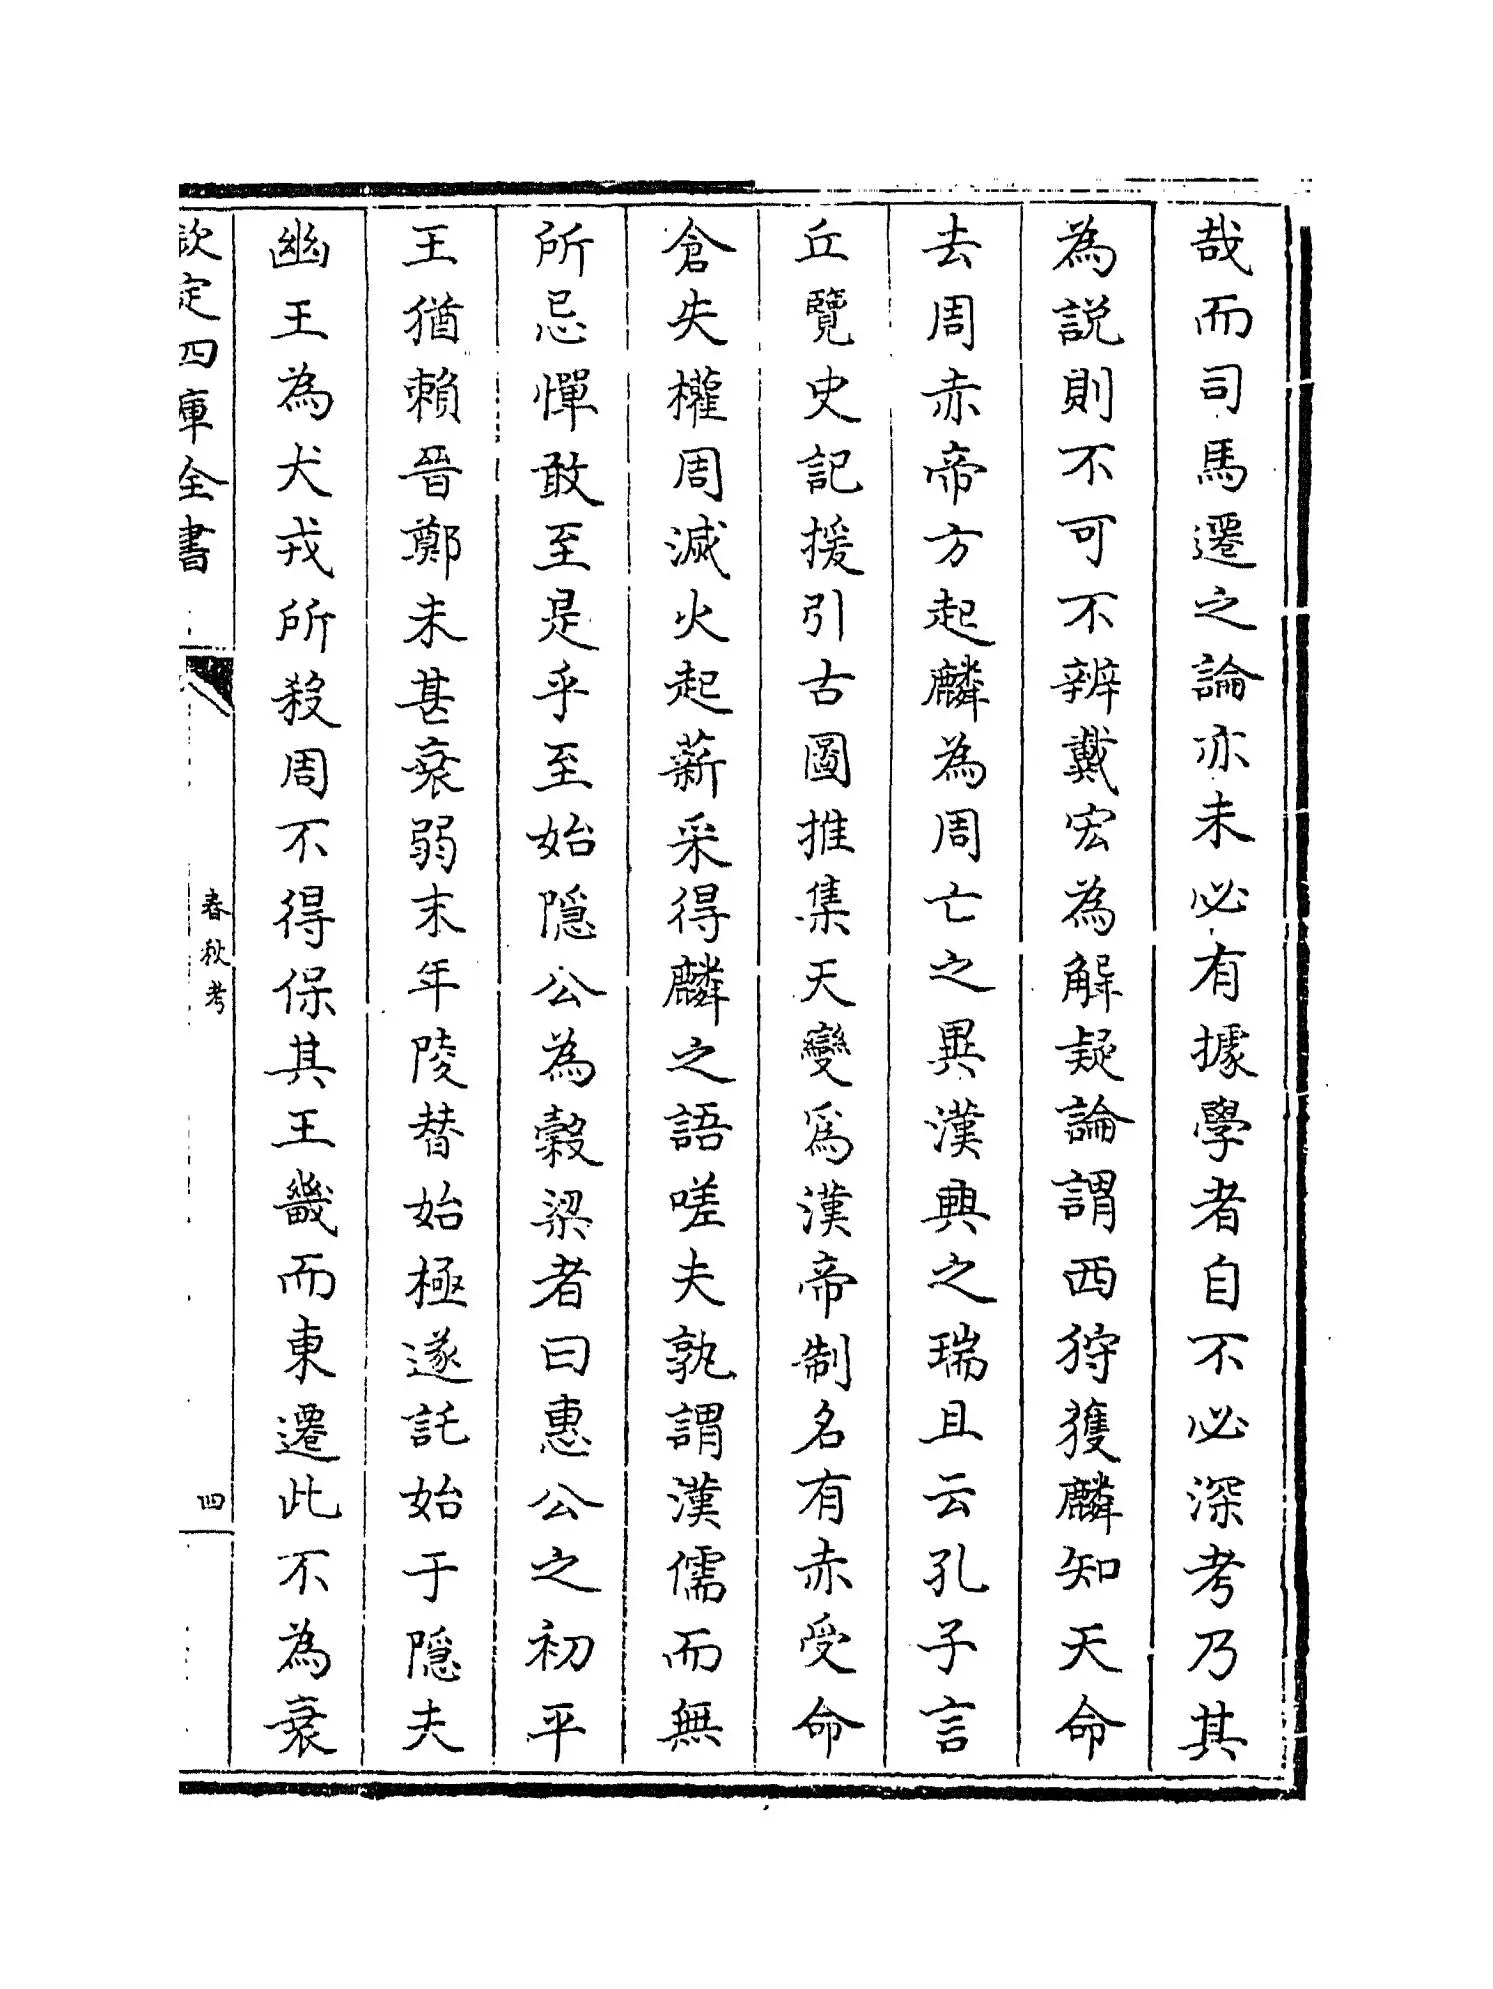 哉而司馬遷之論亦未必有據學者自不必深考乃其
為説則不可不辨戴宏為解疑論謂西狩獲麟知天命
去周赤帝方起麟為周亡之異漢興之瑞且云孔子言
丘覽史記援引古圖推集天變爲漢帝制名有赤受命
倉失權周滅火起薪采得麟之語嗟夫孰謂漢儒而無
所忌憚敢至是乎至始隱公為穀梁者曰惠公之初平
王猶賴晉鄭未甚衰弱末年陵替始極遂託始于隱夫
幽王為犬戎所殺周不得保其王畿而東遷此不為衰
欽定四庫全書
春秋考
四